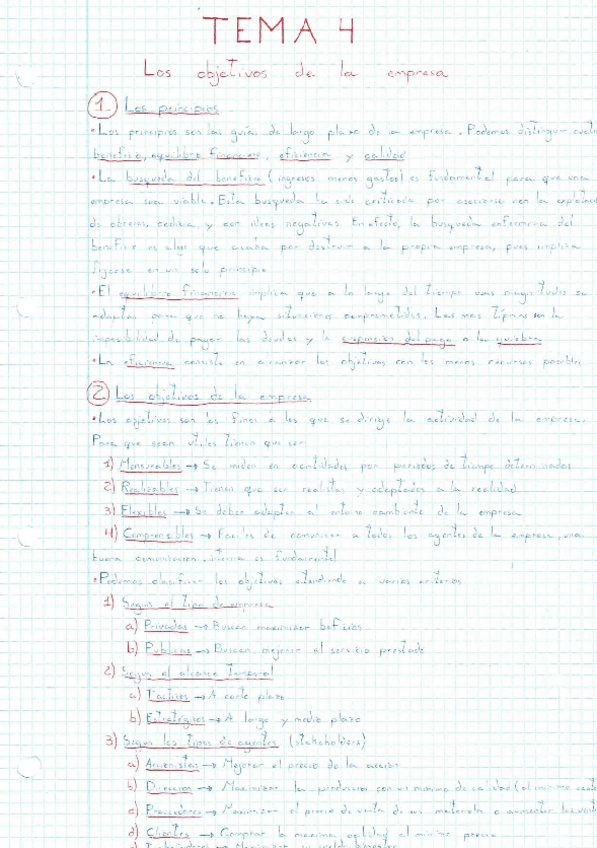 TEMA 4
Los objetivos de la empresa
1 Los principios
• Los principios son las guías de largo plazo de la empresa. Podemos distinguir
beneficio, equilibrio financiero, eficiencia y calidad
• La busqueda del beneficio (ingresos menos gastos) es fundamental para que una
empresa sea viable. Esta busqueda ha sido criticada por asociarse con la
de obreros, codicia, y con ideas negativas. En efecto, la busqueda enfermiza del
beneficio es algo que acaba por destruir a la propia empresa, pues implica
fijarse en un solo principio
• El equilibrio financiero implica que a lo largo del tiempo sus magnitudes se
adaptan para que no haya situaciones comprometidas. Las mas típicas son la
imposibilidad de pagar las deudas y la suspension del pago o la quiebra
• La eficiencia consiste en alcanzar los objetivos con los menos recursos posibles
2 Los objetivos de la empresa
• Los objetivos son los fines a los que se dirige la actividad de la empresa.
Para que sean utiles tienen que ser:
1) Mensurables → Se miden en cantidades por periodos de tiempo determinados
2) Realizables → Tienen que ser realistas y adaptados a la realidad
3) Flexibles → Se deben adaptar al entorno cambiante de la empresa
4) Comprensibles → Faciles de comunicar a todos los agentes de la empresa, una
buena comunicacion interna es fundamental
• Podemos clasificar los objetivos atendiendo a varios criterios
1) Segun el tipo de empresa
a) Privadas → Buscan maximizar
b) Publicas → Buscan mejorar el servicio prestado
2) Segun el alcance temporal
a) Tacticos → A corto plazo
b) Estratégicos → A largo y medio plazo
3) Segun los tipos de agentes (stakeholders)
a) Accionistas → Mejorar el precio de la accion
b) Direccion → Maximizar la produccion con un minimo de calidad (al minimo
c) Proveedores → Maximizar el precio de venta de sus materiales o aumentar
d) Clientes → Comprar la maxima calidad al minimo precio